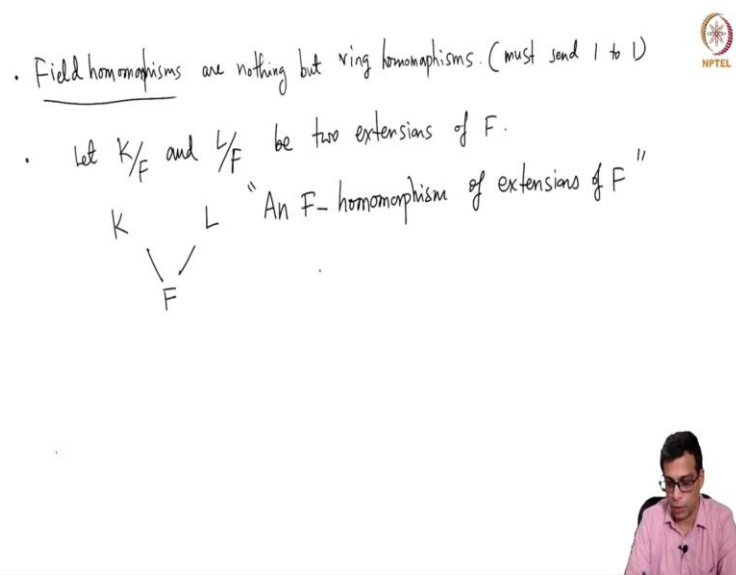 . Field homomorphisms are nothing but ring homomorphisms. (must send 1 to 1)
. Let K/F and L/F be two extensions of F.
K L "An F-homomorphism of extensions of F"
F
NPTEL